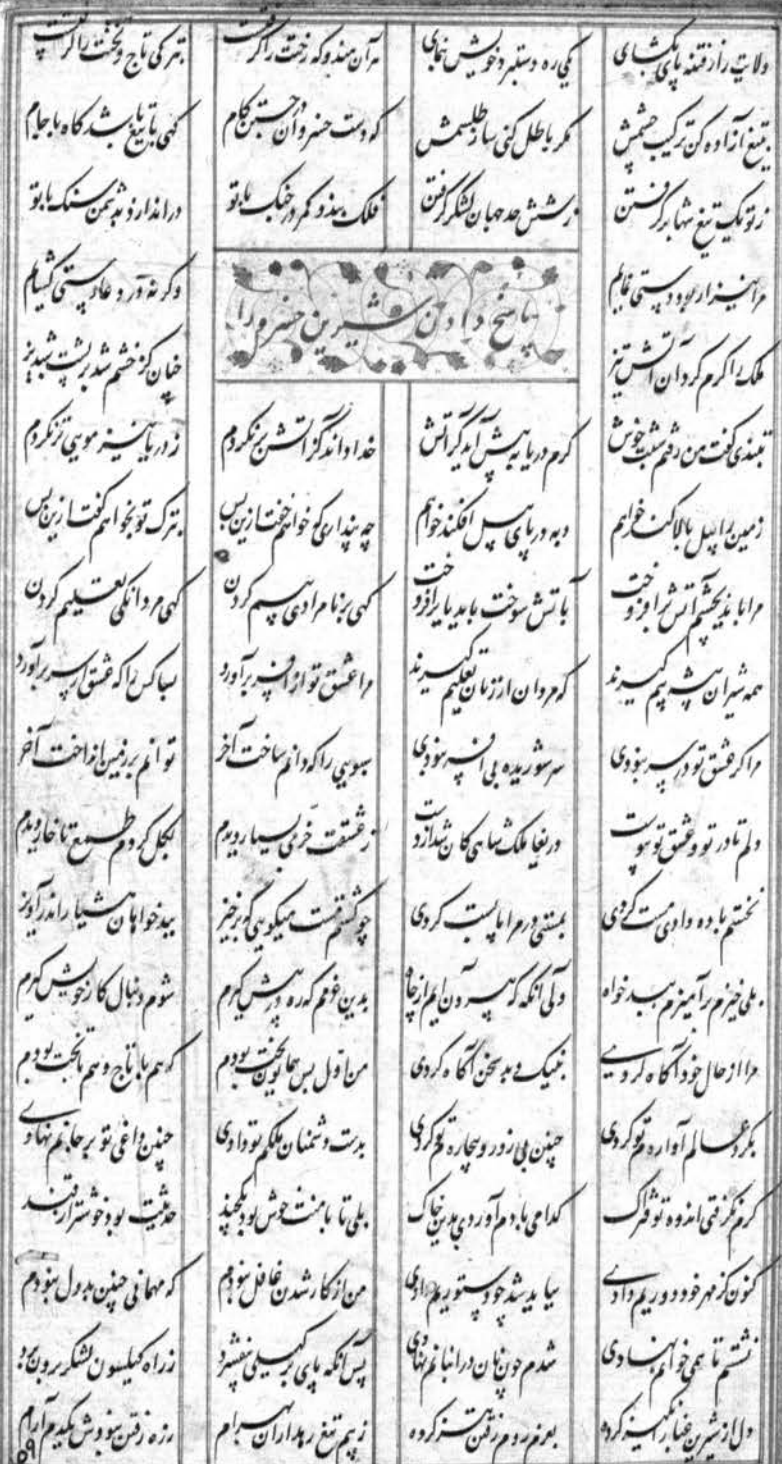 ولایت را ز فتنه پای بگشای یکی ره دستبرد خویش بنمای هر آن هندو که رخت را گرفت بترکی تاج و تخت را گرفت
بتیغ آزاده کن ترکیب جسمش مگر باطل کنی ساز طلسمش که دست خسروان در جستن کام گهی با تیغ باشد گاه با جام
ز تو یک تیغ تنها برگرفتن ز شش حد جهان لشکر گرفتن فلک بندد کمر در جنگ با تو دراندازد بدشمن سنگ با تو
مرا نیز ار بود دستی نمایم وگرنه در دعا دستی گشایم
پاسخ دادن شیرین خسرو را
ملک را گرم کرد آن آتش تیز چنان کز خشم شد بر پشت شبدیز
بتندی گفت من رفتم شبت خوش گرم دریا به پیش آید گر آتش خدا داند کز آتش برنگردم ز دریا نیز مویی تر نگردم
زمین را پیل بالا کند خواهم دبه در پای پیل افکند خواهم چه پنداری که خواهم خفت ازین پس بترک تو بخواهم گفت ازین پس
مرا باید بچشم آتش برافروخت بآتش سوخت باید یا برافروخت گهی بر نامرادی بیم کردن گهی مردانگی تعلیم کردن
همه شیران گیرند که مردان از زنان تعلیم گیرند مرا عشق تو از افسر برآورد بسا کس را که عشق از سر برآورد
مرا گر عشق تو در سر نبودی سر شوریده بی افسر نبودی سبویی را که دانم ساخت آخر توانم بر زمین انداخت آخر
دلم تا در تو و عشق تو پیوست دریغا ملک شاهی کان شد از دست ز عشقت خرمی بسیار دیدم بجل کردم طمع تا خار دیدم
نخستم باده دادی مست کردی بمستی در مرا پابست کردی چو گشتم مست میگویی که برخیز ببدخواهان هشیار اندرآویز
بلی خیزم برآمیزم ببدخواه ولی آنگه که بیرون آیم از چاه بدین عزمم که ره در پیش گیرم شوم دنبال کار خویش گیرم
مرا از حال خود آگاه کردی بنیک و بد سخن آگاه کردی من اول بس همایون بخت بودم که هم با تاج و هم با تخت بودم
بگرد عالم آواره تو کردی چنین بی زور و بیچاره تو کردی بدست دشمنان ملکم تو دادی چنین داغی تو بر جانم نهادی
گرم نگرفتی اندوه تو فتراک کدامی بادم آوردی بدین خاک بلی تا با منت خوش بود یکچند حدیثت بود خوشتر از قند
کنون کز مهر خود دوریم دادی بباید شد چو دستوریم دادی من از کار شدن غافل نبودم که مهمانی چنین بددل نبودم
نشستم تا همی خوانم نهادی شدم چون نان در انبانم نهادی پس آنگه پای بر گیلی بیفشرد ز راه گیلکون لشکر برون برد
دل از شیرین غبارانگیز کرده بعزم روم رفتن تیز کرده ز بیم تیغ رهداران بهرام ز ره رفتن نبودش یکدم آرام
۵۹